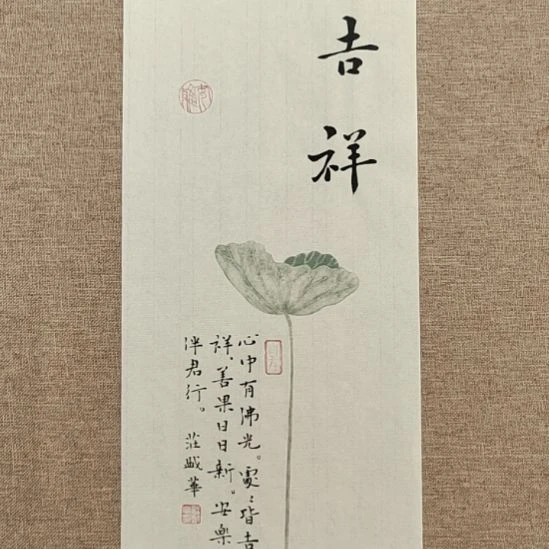 吉祥
心中有佛光。處處皆吉
祥、善果日日新。安樂
伴君行。 莊
華